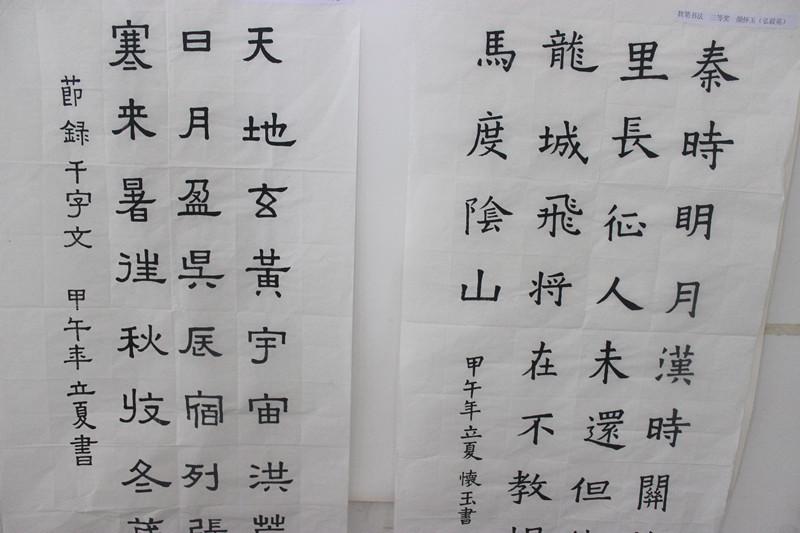 软笔书法 三等奖 颜怀玉（弘毅苑）
秦時明月漢時關
里長征人未還但
龍城飛将在不教
馬度陰山
甲午年立夏 懷玉書
天地玄黃宇宙洪荒
日月盈昃辰宿列張
寒来暑往秋收冬
節録千字文 甲午年立夏書